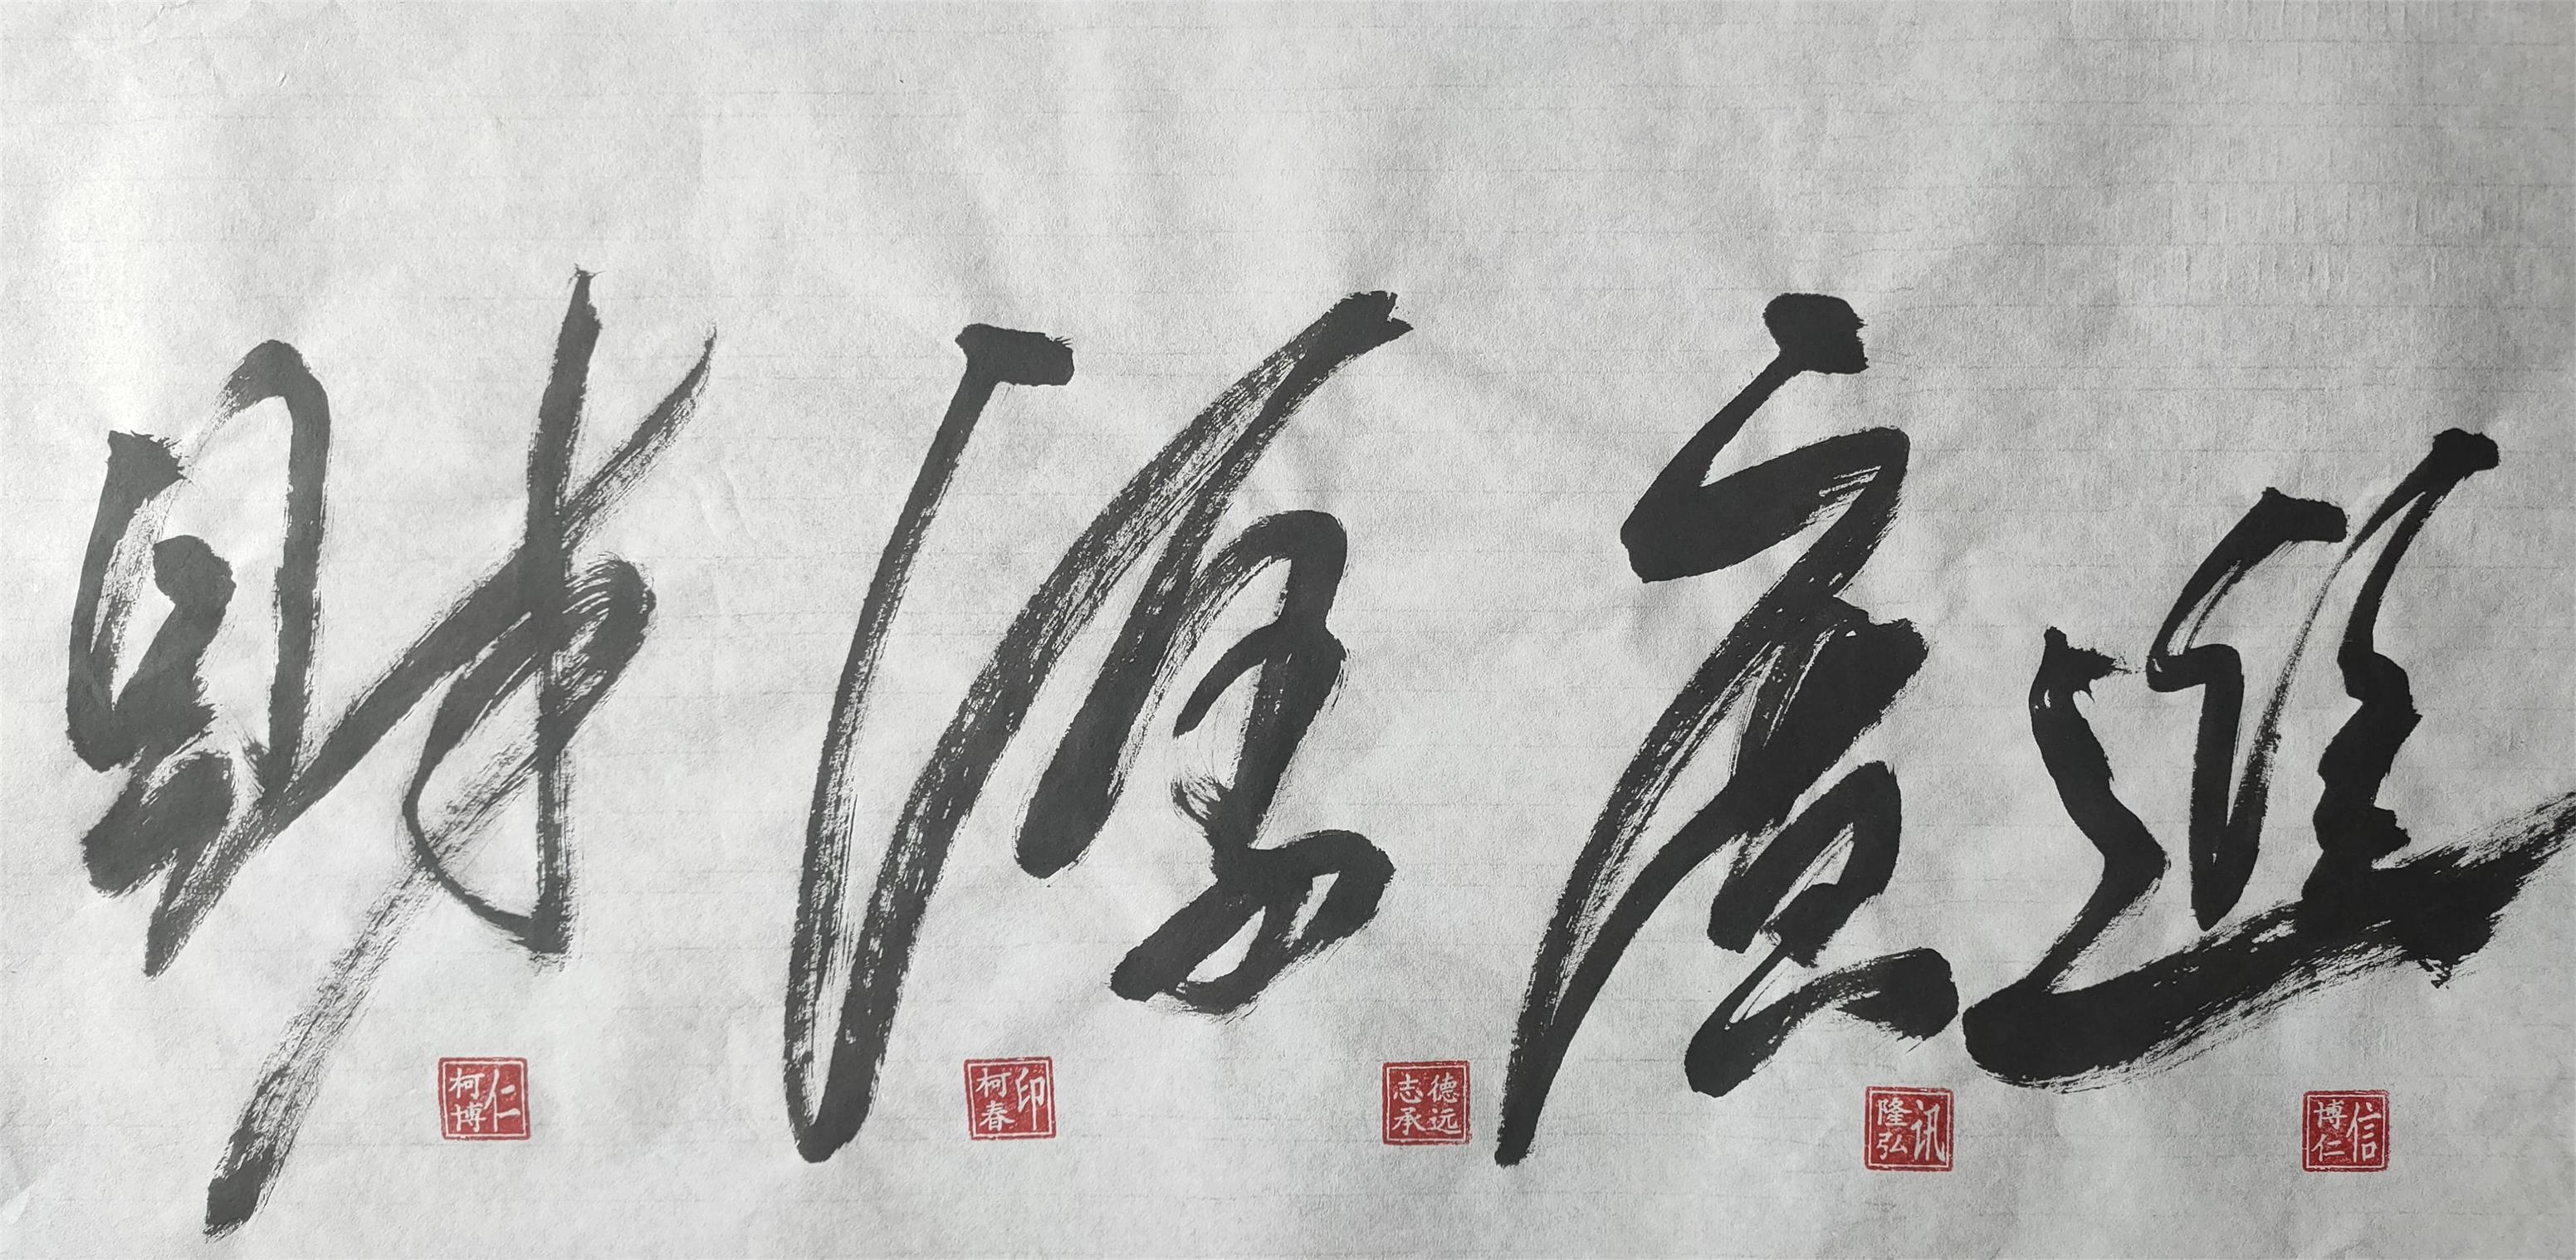 財源廣進
柯博仁
柯春印
志承德远
隆弘讯
博仁信